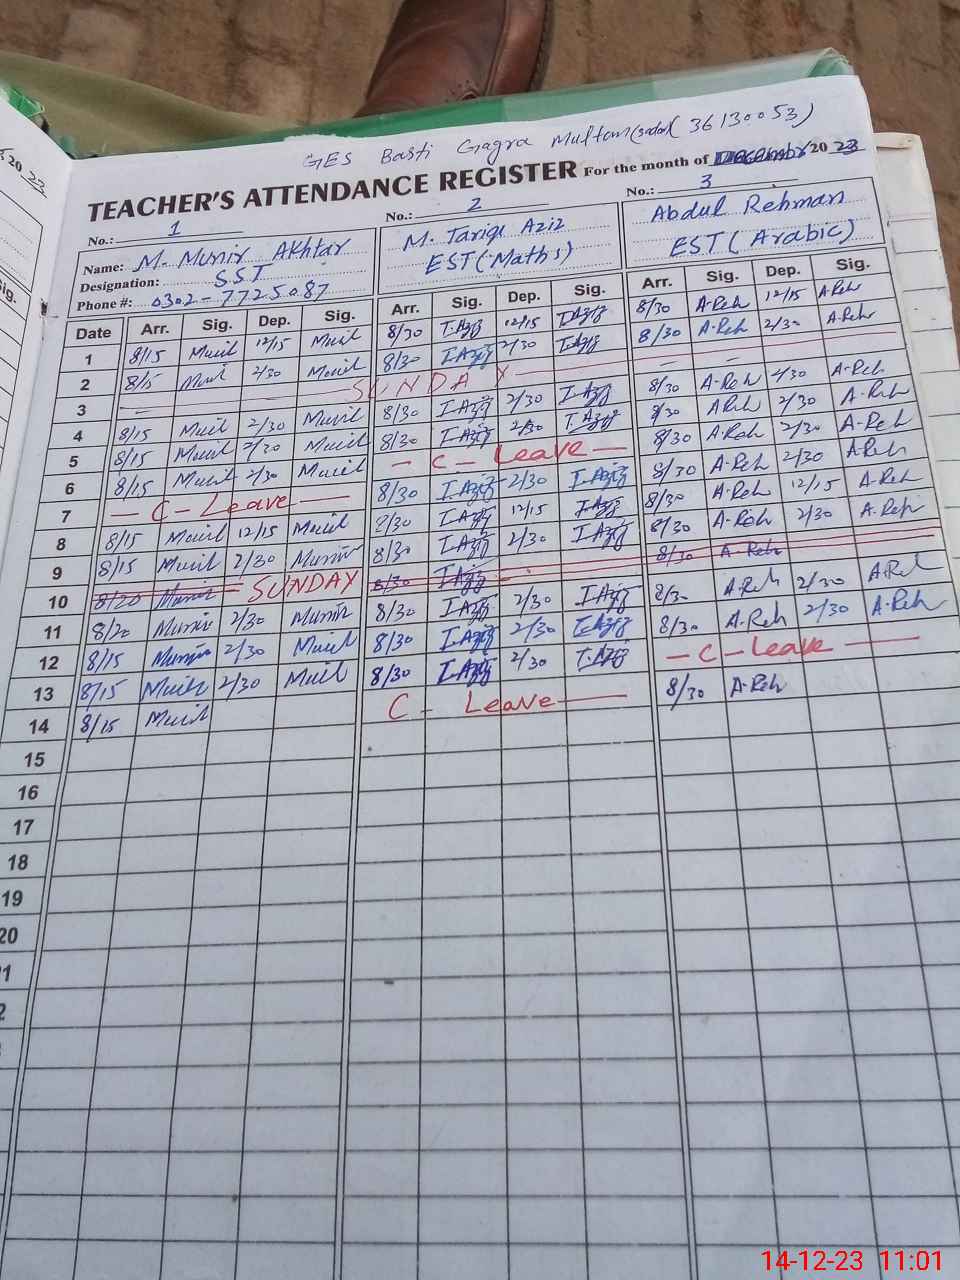 GES Basti Gagra Multan (Sadar (36130053)
TEACHER'S ATTENDANCE REGISTER For the month of December 20 23
20 23
No.: 1 No.: 2 No.: 3
Name: M. Munir Akhtar M. Tariq Aziz Abdul Rehman
Designation: SST EST (Maths) EST (Arabic)
Phone #: 0302-7725087
Date Arr. Sig. Dep. Sig. Arr. Sig. Dep. Sig. Arr. Sig. Dep. Sig.
1 8/15 Munir 12/15 Munir 8/30 T.Aziz 12/15 T.Aziz 8/30 A-Reh 12/15 A-Reh
2 8/15 Munir 2/30 Munir 8/30 T.Aziz 2/30 T.Aziz 8/30 A-Reh 2/30 A-Reh
3 — SUNDAY —
4 8/15 Munir 2/30 Munir 8/30 T.Aziz 2/30 T.Aziz 8/30 A-Reh 2/30 A-Reh
5 8/15 Munir 2/30 Munir 8/30 T.Aziz 2/30 T.Aziz 8/30 A-Reh 2/30 A-Reh
6 8/15 Munir 2/30 Munir — C - Leave — 8/30 A-Reh 2/30 A-Reh
7 — C - Leave — 8/30 T.Aziz 2/30 T.Aziz 8/30 A-Reh 2/30 A-Reh
8 8/15 Munir 12/15 Munir 8/30 T.Aziz 12/15 T.Aziz 8/30 A-Reh 12/15 A-Reh
9 8/15 Munir 2/30 Munir 8/30 T.Aziz 2/30 T.Aziz 8/30 A-Reh 2/30 A-Reh
10 8/20 Munir SUNDAY 8/30 T.Aziz 8/30 A-Reh
11 8/20 Munir 2/30 Munir 8/30 T.Aziz 2/30 T.Aziz 8/30 A-Reh 2/30 A-Reh
12 8/15 Munir 2/30 Munir 8/30 T.Aziz 2/30 T.Aziz 8/30 A-Reh 2/30 A-Reh
13 8/15 Munir 2/30 Munir 8/30 T.Aziz 2/30 T.Aziz — C - Leave —
14 8/15 Munir C - Leave — 8/30 A-Reh
15
16
17
18
19
20
14-12-23 11:01